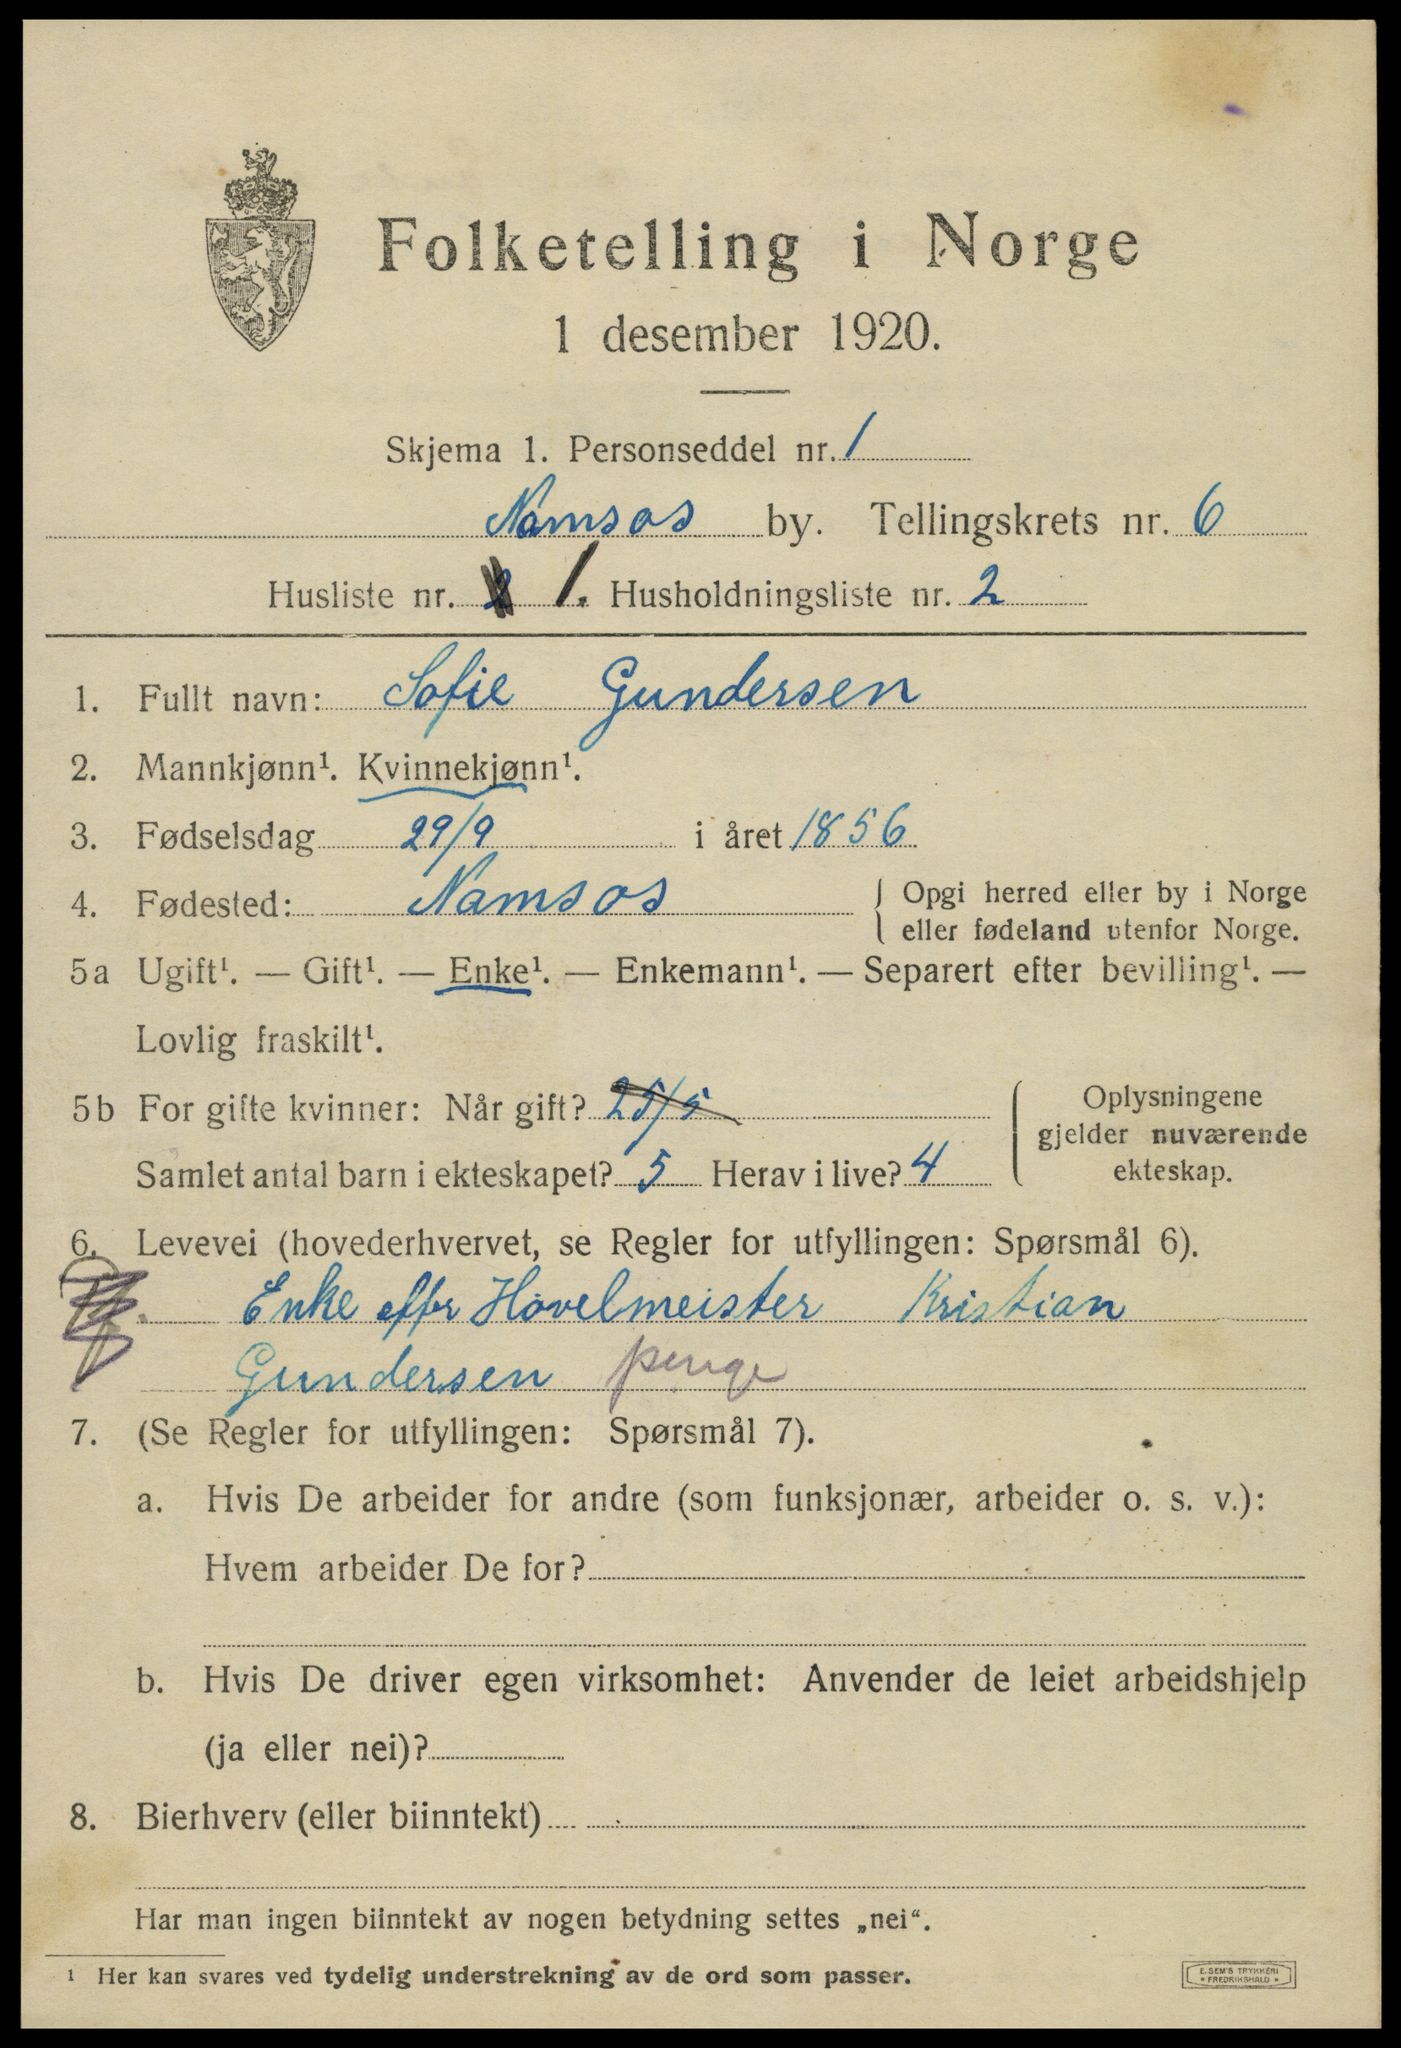 Folketelling i Norge
1 desember 1920.
Skjema 1. Personseddel nr. 1
Namsos by. Tellingskrets nr. 6
Husliste nr. 2 1. Husholdningsliste nr. 2
1. Fullt navn: Sofie Gundersen
2. Mannkjønn¹. Kvinnekjønn¹.
3. Fødselsdag 29/9 i året 1856
4. Fødested: Namsos { Opgi herred eller by i Norge
eller fødeland utenfor Norge.
5a Ugift¹. — Gift¹. — Enke¹. — Enkemann¹. — Separert efter bevilling¹. —
Lovlig fraskilt¹.
5b For gifte kvinner: Når gift? 25/5
Samlet antal barn i ekteskapet? 5 Herav i live? 4
Oplysningene
gjelder nuværende
ekteskap.
6. Levevei (hovederhvervet, se Regler for utfyllingen: Spørsmål 6).
Enke efter Høvelmeister Kristian
Gundersen penge
7. (Se Regler for utfyllingen: Spørsmål 7).
a. Hvis De arbeider for andre (som funksjonær, arbeider o. s. v.):
Hvem arbeider De for?
b. Hvis De driver egen virksomhet: Anvender de leiet arbeidshjelp
(ja eller nei)?
8. Bierhverv (eller biinntekt)
Har man ingen biinntekt av nogen betydning settes „nei“.
¹ Her kan svares ved tydelig understrekning av de ord som passer.
E. SEM'S TRYKKERI
• FREDRIKSHALD •